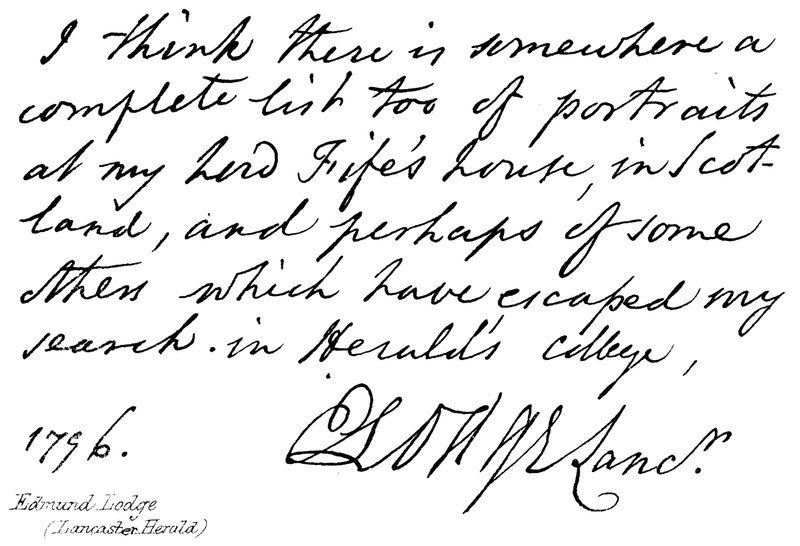 I think there is somewhere a
complete list too of portraits
at my Lord Fife's house, in Scot-
land, and perhaps of some
others which have escaped my
search. in Herald's College,
1796. ELODGE Lancr.
Edmund Lodge
(Lancaster Herald)